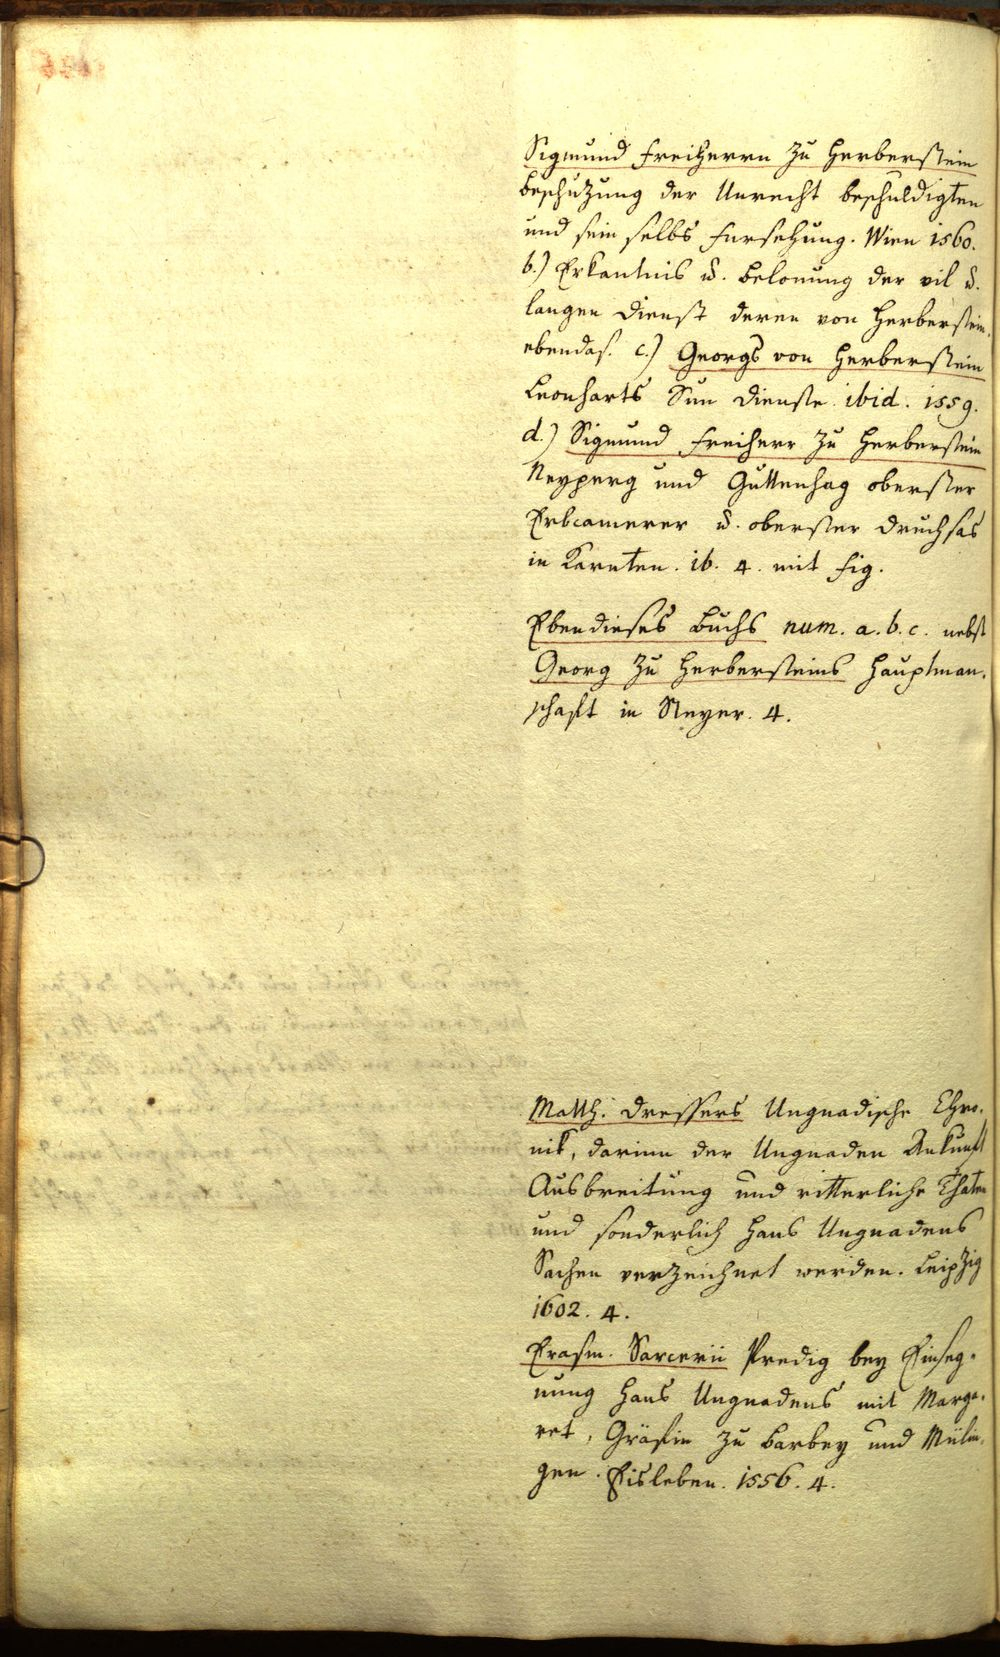 Sigmund Freiherrn zu Herberstein
beschuzung der Unrecht beschuldigten
und sein selbs fursehung. Wien 1560.
b.) Erkantnis u. belonung der vil u.
langen Dienst deren von Herberstein.
ebendas. c.) Georgs von Herberstein
Leonharts Sun Dienste. ibid. 1559.
d.) Sigmund Freiherr zu Herberstein
Neyperg und Guttenhag oberster
Erbcamerer u. oberster Druchsas
in Karnten. ib. 4. mit Fig.
Ebendieses Buchs num. a. b. c. nebst
Georg zu Herbersteins Hauptman-
schaft in Steyer. 4.
Matth. Dressers Ungnadische Chro-
nik, darinn der Ungnaden Ankunft
Ausbreitung und ritterliche Thaten
und sonderlich Hans Ungnadens
Sachen verzeichnet werden. Leipzig
1602. 4.
Erasm. Sarcerii Predig bey Einseg-
nung Hans Ungnadens mit Marga-
ret, Gräfin zu Barbey und Mülin-
gen. Eisleben. 1556. 4.